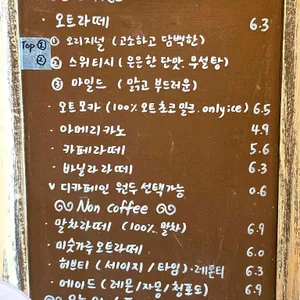 · 오트라떼 6.3
Top ① ① 오리지널 (고소하고 담백한)
② ② 스위티시 (은은한 단맛. 무설탕)
③ 마일드 (맑고 부드러운)
· 오트모카 (100% 오트초코밀크. only ice) 6.5
· 아메리카노 4.9
· 카페라떼 5.6
· 바닐라라떼 6.3
v 디카페인 원두 선택가능 0.6
Non coffee
말차라떼 (100% 말차) 6.9
· 미숫가루오트라떼 6.0
· 허브티 (세이지 / 타임) · 레몬티 6.3
· 에이드 (레몬 / 자몽 / 청포도) 6.9